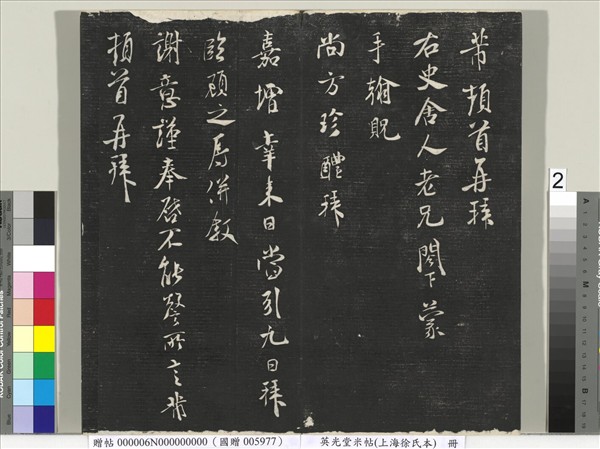 芾頓首再拜
右史舍人老兄閣下蒙
手翰貺
尚方珍醴拜
嘉增幸來日當引九日拜
臨顧之辱併敘
謝意謹奉啓不能罄所言芾
頓首再拜
2
贈帖 000006N000000000（國贈 005977）
英光堂米帖(上海徐氏本) 冊